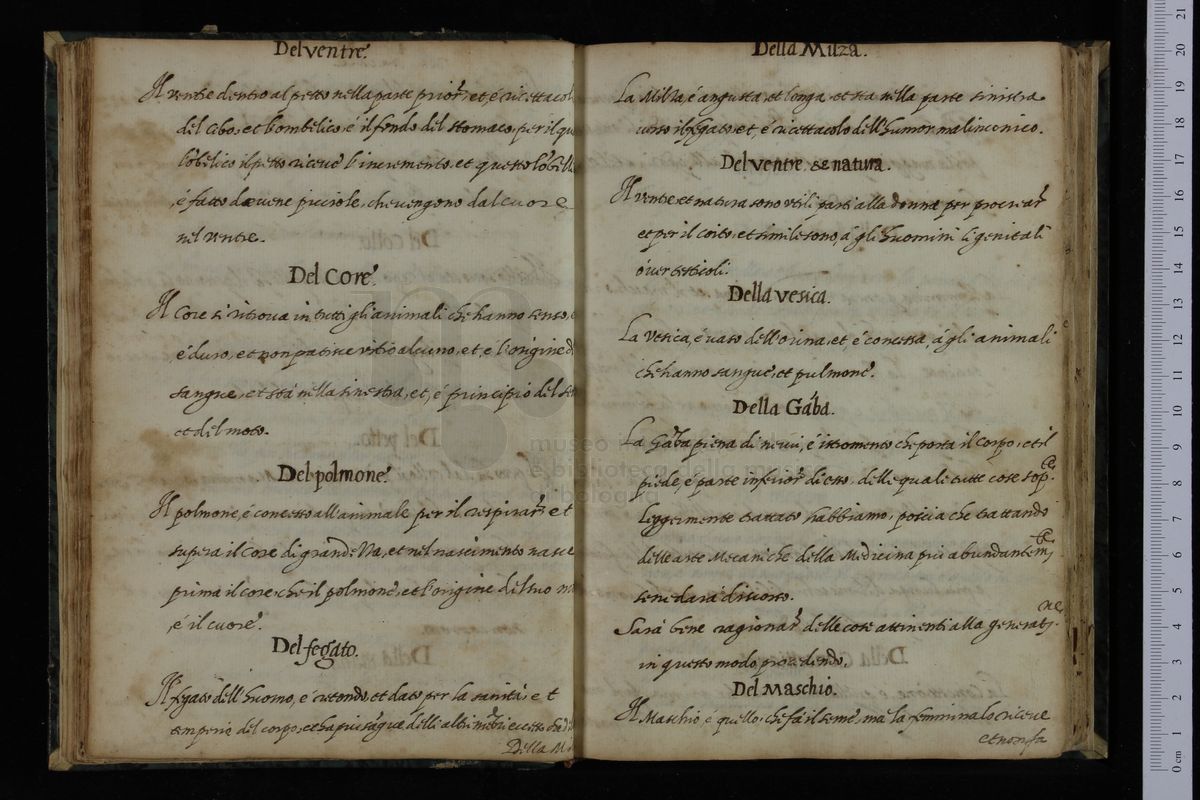 Del ventre.
Il ventre dentro al petto nella parte prior, et, é ricettacol
del cibo, et bombelico, é il fondo del stomaco, per il qu
l'obelico il petto riceue l'incremento, et questo l'obell
é fatto da uene picciole, che uengono dal cuore
nel ventre.
Del Core.
Il Core si ritroua in tutti gli animali che hanno senso,
é duro, et non patisce vitio alcuno, et, é l'origine d
sangue, et stá nella sinestra, et, é principio del se
et del moto.
Del polmone.
Il polmone, é concesso all'animale per il respirar et
supera il core di grandezza, et nel nascimento nasce
prima il core, che il polmone, et l'origine di suo m
é il cuore.
Del fegato.
Il fegato dell'huomo, é rotondo, et dato per la sanitá, et
temperio del corpo, et ha piu sāgue delli altri mēbri eccetto che
Della M
Della Milza.
La Milza, é angusta, et longa, et sta nella parte sinistra
uerso il fegato, et é ricettacolo dell'humor malinconico.
Del ventre, & natura.
Il ventre, et natura sono vtili parti alla donna per procrear
et per il coito, et simile sono, á gli huomini li genitali
ó uer testicoli.
Della vesica.
La Vesica, é uaso dell'orina, et, é concessa, á gli animali
che hanno sangue, et pulmone.
Della Gāba.
La Gāba piena di nerui, é istromento che porta il corpo, et il
piede, é parte inferior di esso. delle quali tutte cose sop.ᵗᵉ
leggermente trattato habbiamo, poscia che trattando
delle arte Mecaniche della Medicina piu abundantem.ᵗᵉ
se ne dará discorso.
Sará bene ragionar delle cose attinenti alla generati.ⁿᵉ
in questo modo procedendo.
Del Maschio.
Il Maschio é quello, che fá il seme, má la femmina lo riceue
et non fa
museo
e biblioteca della musica
di bologna
21
20
19
18
17
16
15
14
13
12
11
10
9
8
7
6
5
4
3
2
1
0 cm